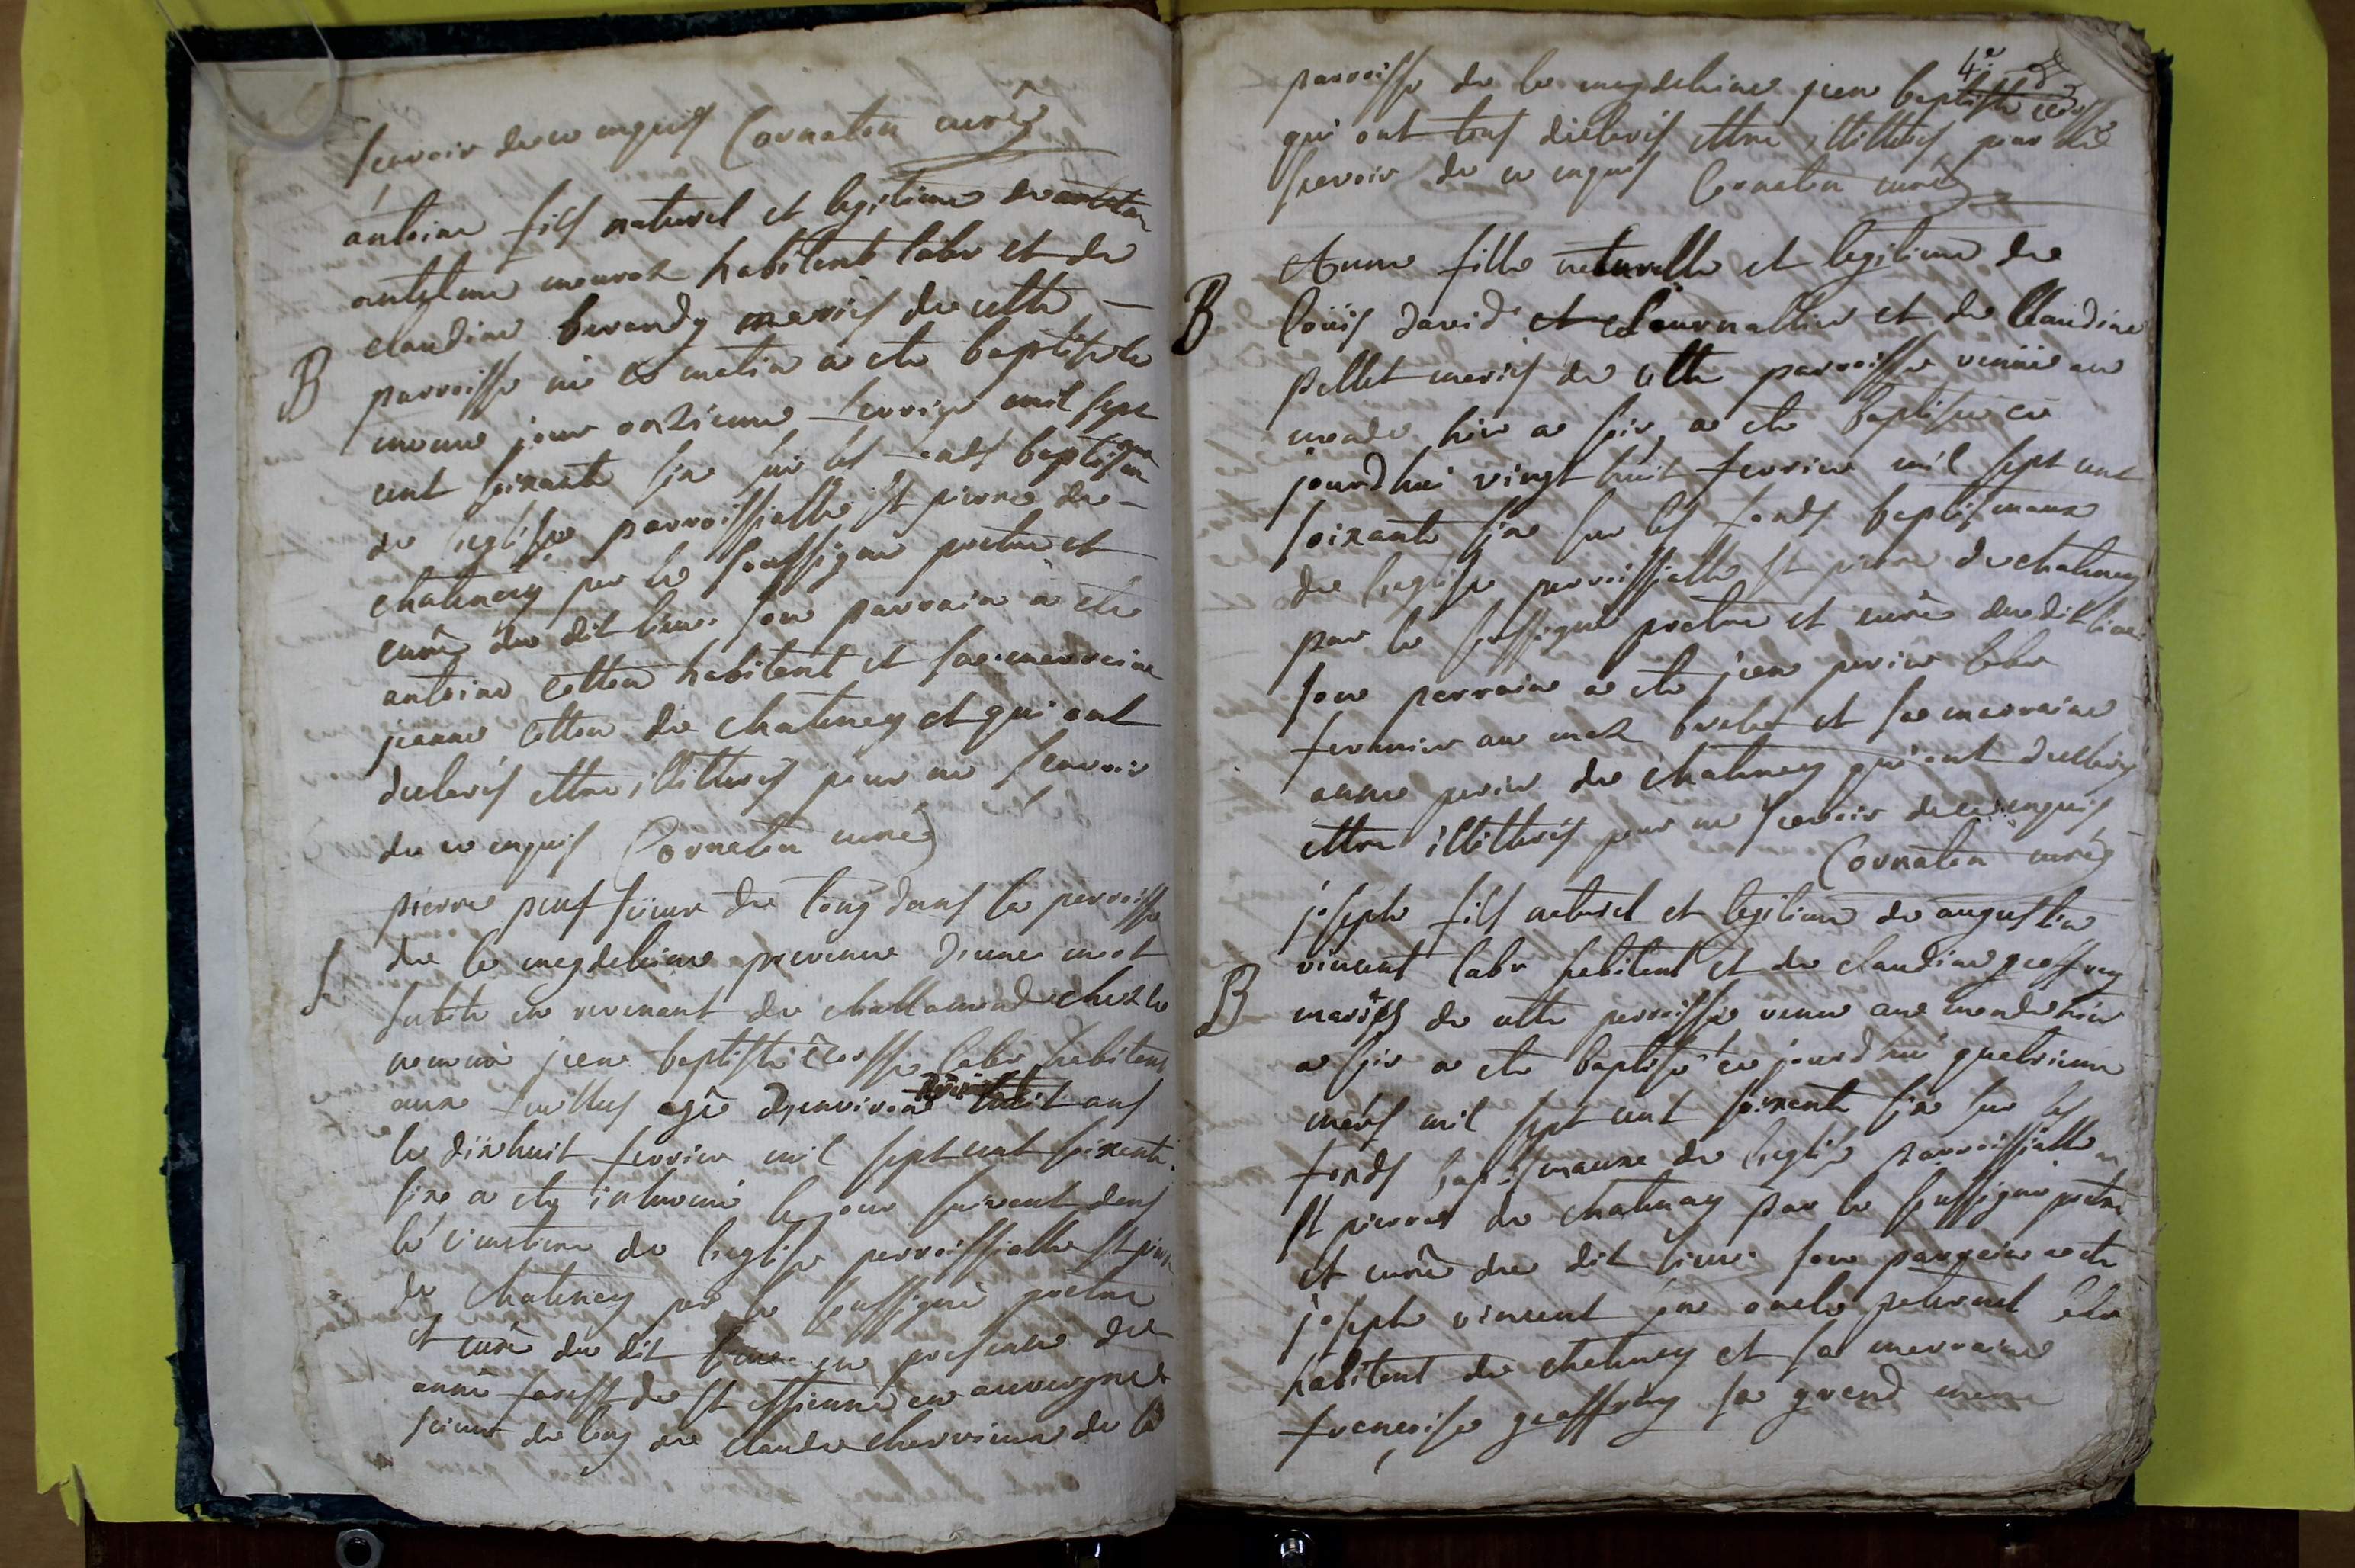 scavoir de ce enquis Cornaton curé
antoine fils naturel et legitime de
antelme mouroz habitent labr et de
claudine berandy mariés de cette
B
parroisse né ce matin a ete baptisé le
meme jour onzieme fevrier mil sept
cent soixante six sur les fonds baptismaux
de leglise parroissialle St pierre de
chatenay par le soussigné pretre et
curé du dit lieu. son parrain a ete
antoine cotton habitent et sa marraine
jeanne cotton de chatenay et qui ont
declarés ettre illitterés pour ne scavoir
de ce enquis Cornaton curé
pierre scieur de long dans la parroisse
S
de la magdelaine prevenu d'une mort
subite en revenant de challamond chez le
nommé jean baptiste ecosse labr habitent
aux feuilles agé d'environ huit ans
le dixhuit fevrier mil sept cent soixente
six a ety inhumé le jour suivent dans
le cimetiere de leglise parroissialle St pierre
de chatenay par le soussigné pretre
et curé du dit lieu en presence de
anne de St estienne en auvergne
scieur de long de claude chervieux de la
4e
parroisse de la magdelaine jean baptiste ecosse
qui ont tous declarés ettre illitterés pour ne
scavoir de ce enquis Cornaton curé
Anne fille naturelle et legitime de
B
loüis david et journallier et de Claudine
pellet mariés de cette parroisse venüe au
monde hier a soir a ete baptisée ce
jourdhui vingt huit fevrier mil sept cent
soixante six sur les fonds baptismaux
de leglise parroissialle St pierre de chatenay
par le soussigné pretre et curé du dit lieu
son parrain a ete jean perier labr
fermier au maz brelet et sa marraine
anne perier de chatenay qui ont declarés
ettre illitterés pour ne scavoir de ce enquis
Cornaton curé
joseph fils naturel et legitime de augustin
vincent labr habitent et de claudine geoffray
B
mariés de cette parroisse venu au monde hier
a soir a ete baptisé ce jourdhui quatrieme
mars mil sept cent soixente six sur les
fonds baptismaux de leglise parroissialle
St pierre de chatenay par le soussigné pretre
et curé du dit lieu. son parrain a ete
joseph vincent son oncle paternel labr
habitent de chatenay et sa marraine
francoise geoffray sa grand mere